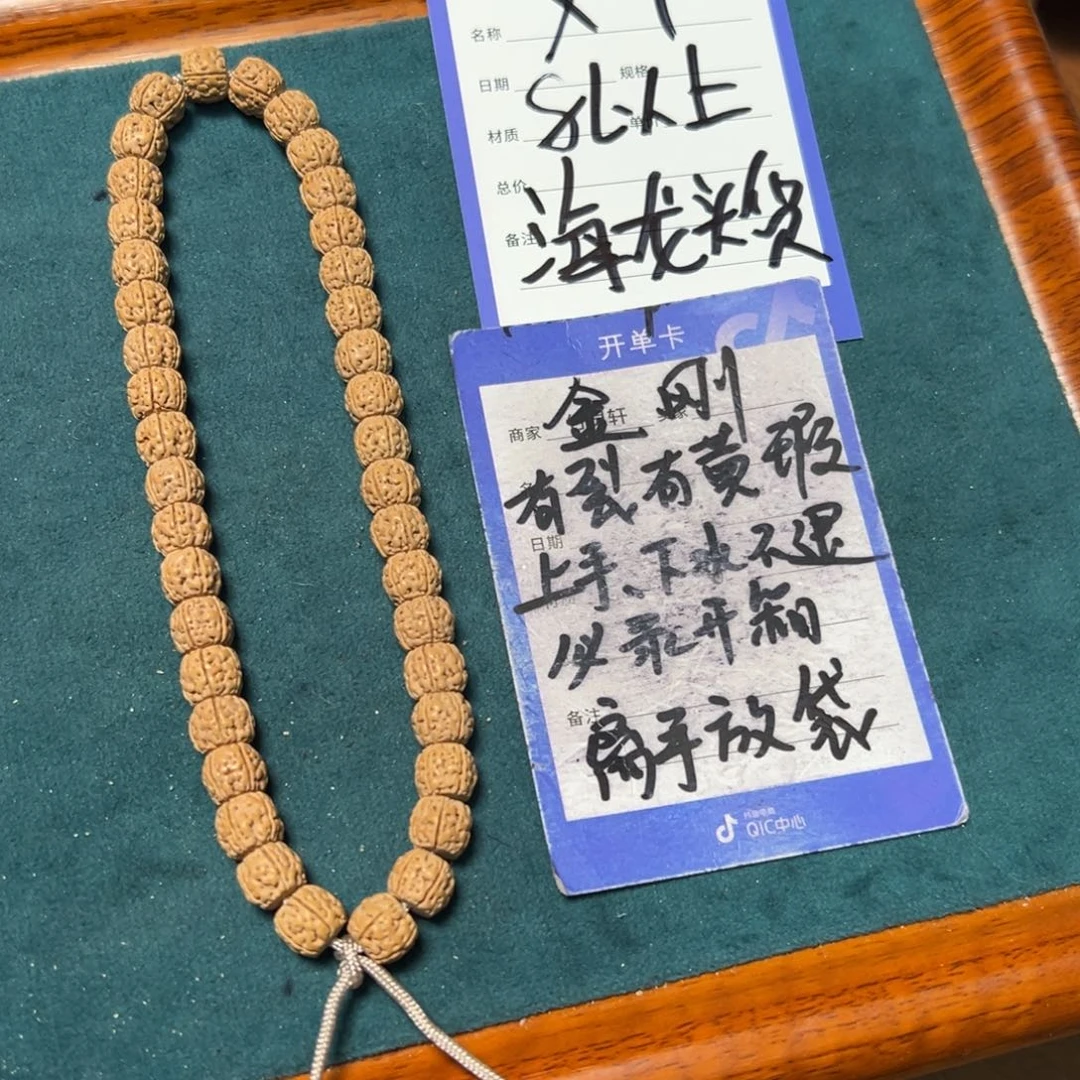 名称
日期 规格
8孔以上
材质
总价
海龙头货
备注
开单卡
金刚
商家 轩
有裂有黄瑕
日期
上手、下水不退
必录开箱
备注
离手放袋
抖音电商
QIC中心